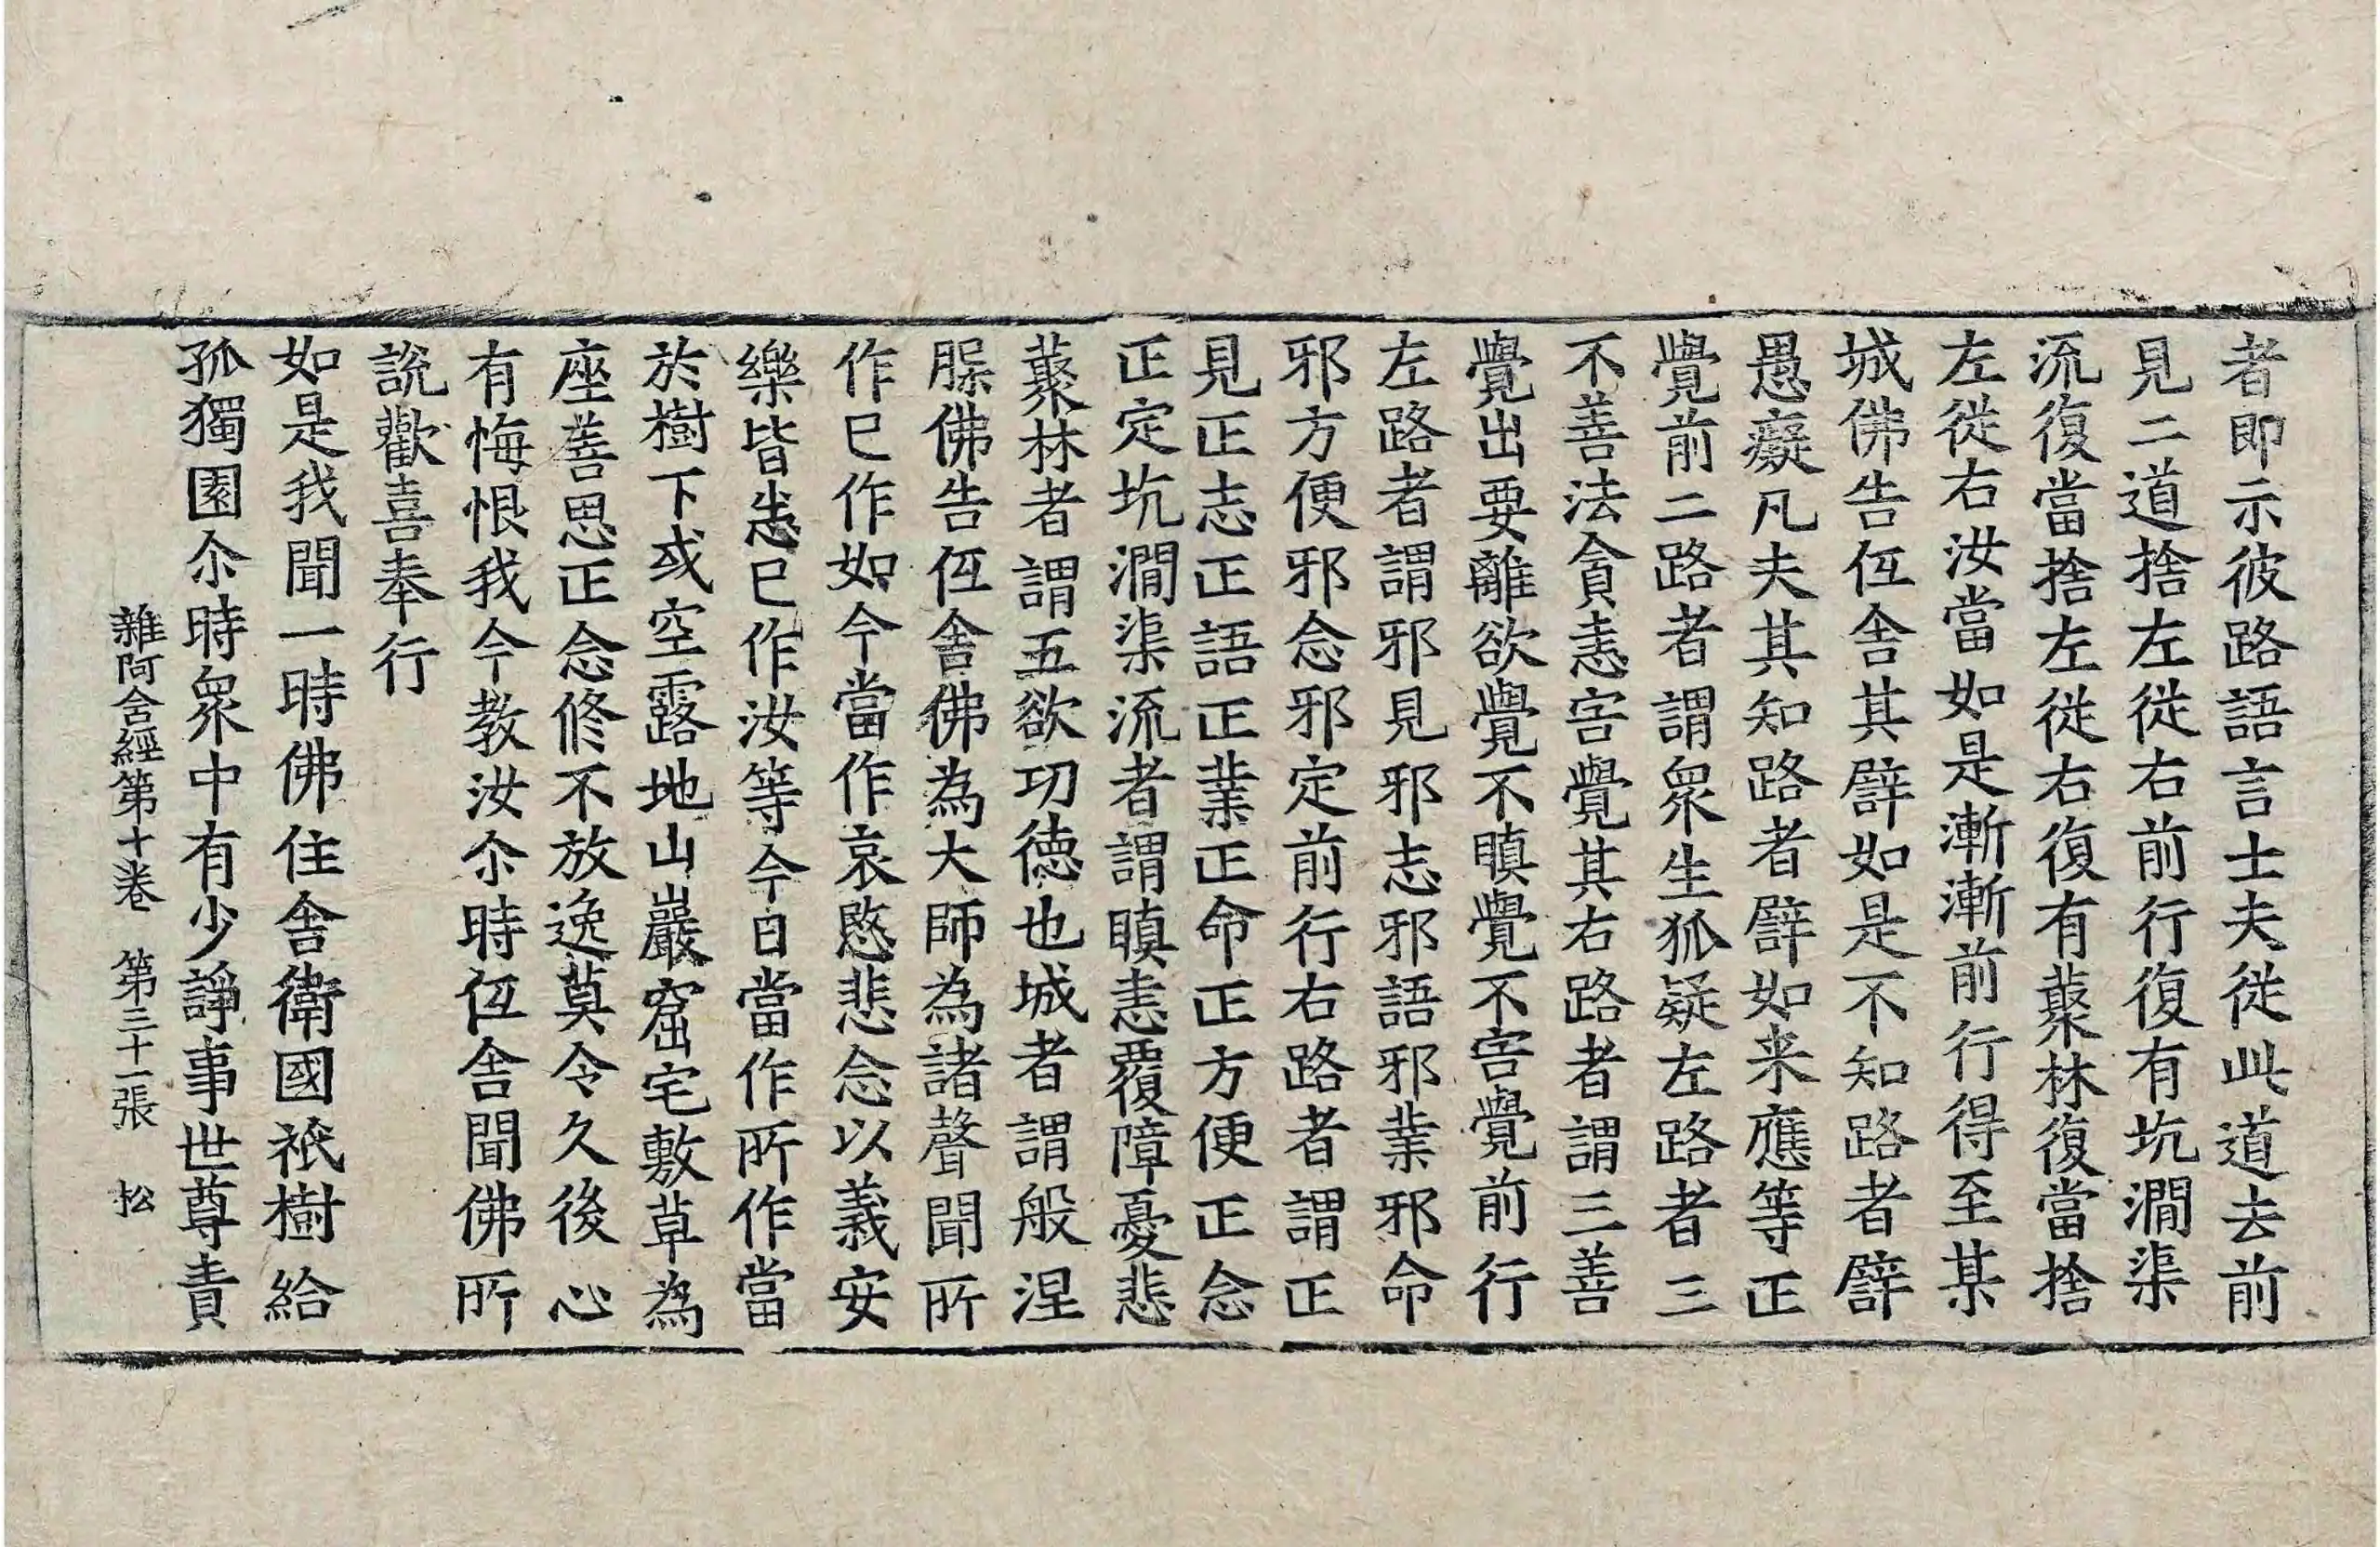 者即示彼路語言士夫從此道去前
見二道捨左從右前行復有坑澗渠
流復當捨左從右復有藂林復當捨
左從右汝當如是漸漸前行得至某
城佛告低舍其譬如是不知路者譬
愚癡凡夫其知路者譬如来應等正
覺前二路者謂眾生狐疑左路者三
不善法貪恚害覺其右路者謂三善
覺出要離欲覺不瞋覺不害覺前行
左路者謂邪見邪志邪語邪業邪命
邪方便邪念邪定前行右路者謂正
見正志正語正業正命正方便正念
正定坑澗渠流者謂瞋恚覆障憂悲
藂林者謂五欲功德也城者謂般涅
槃佛告低舍佛為大師為諸聲聞所
作已作如今當作哀愍悲念以義安
樂皆悉已作汝等今日當作所作當
於樹下或空露地山巖窟宅敷草為
座善思正念修不放逸莫令久後心
有悔恨我今教汝尒時低舍聞佛所
說歡喜奉行
如是我聞一時佛住舍衛國祇樹給
孤獨園尒時眾中有少諍事世尊責
雜阿含經第十卷　第三十一張　松